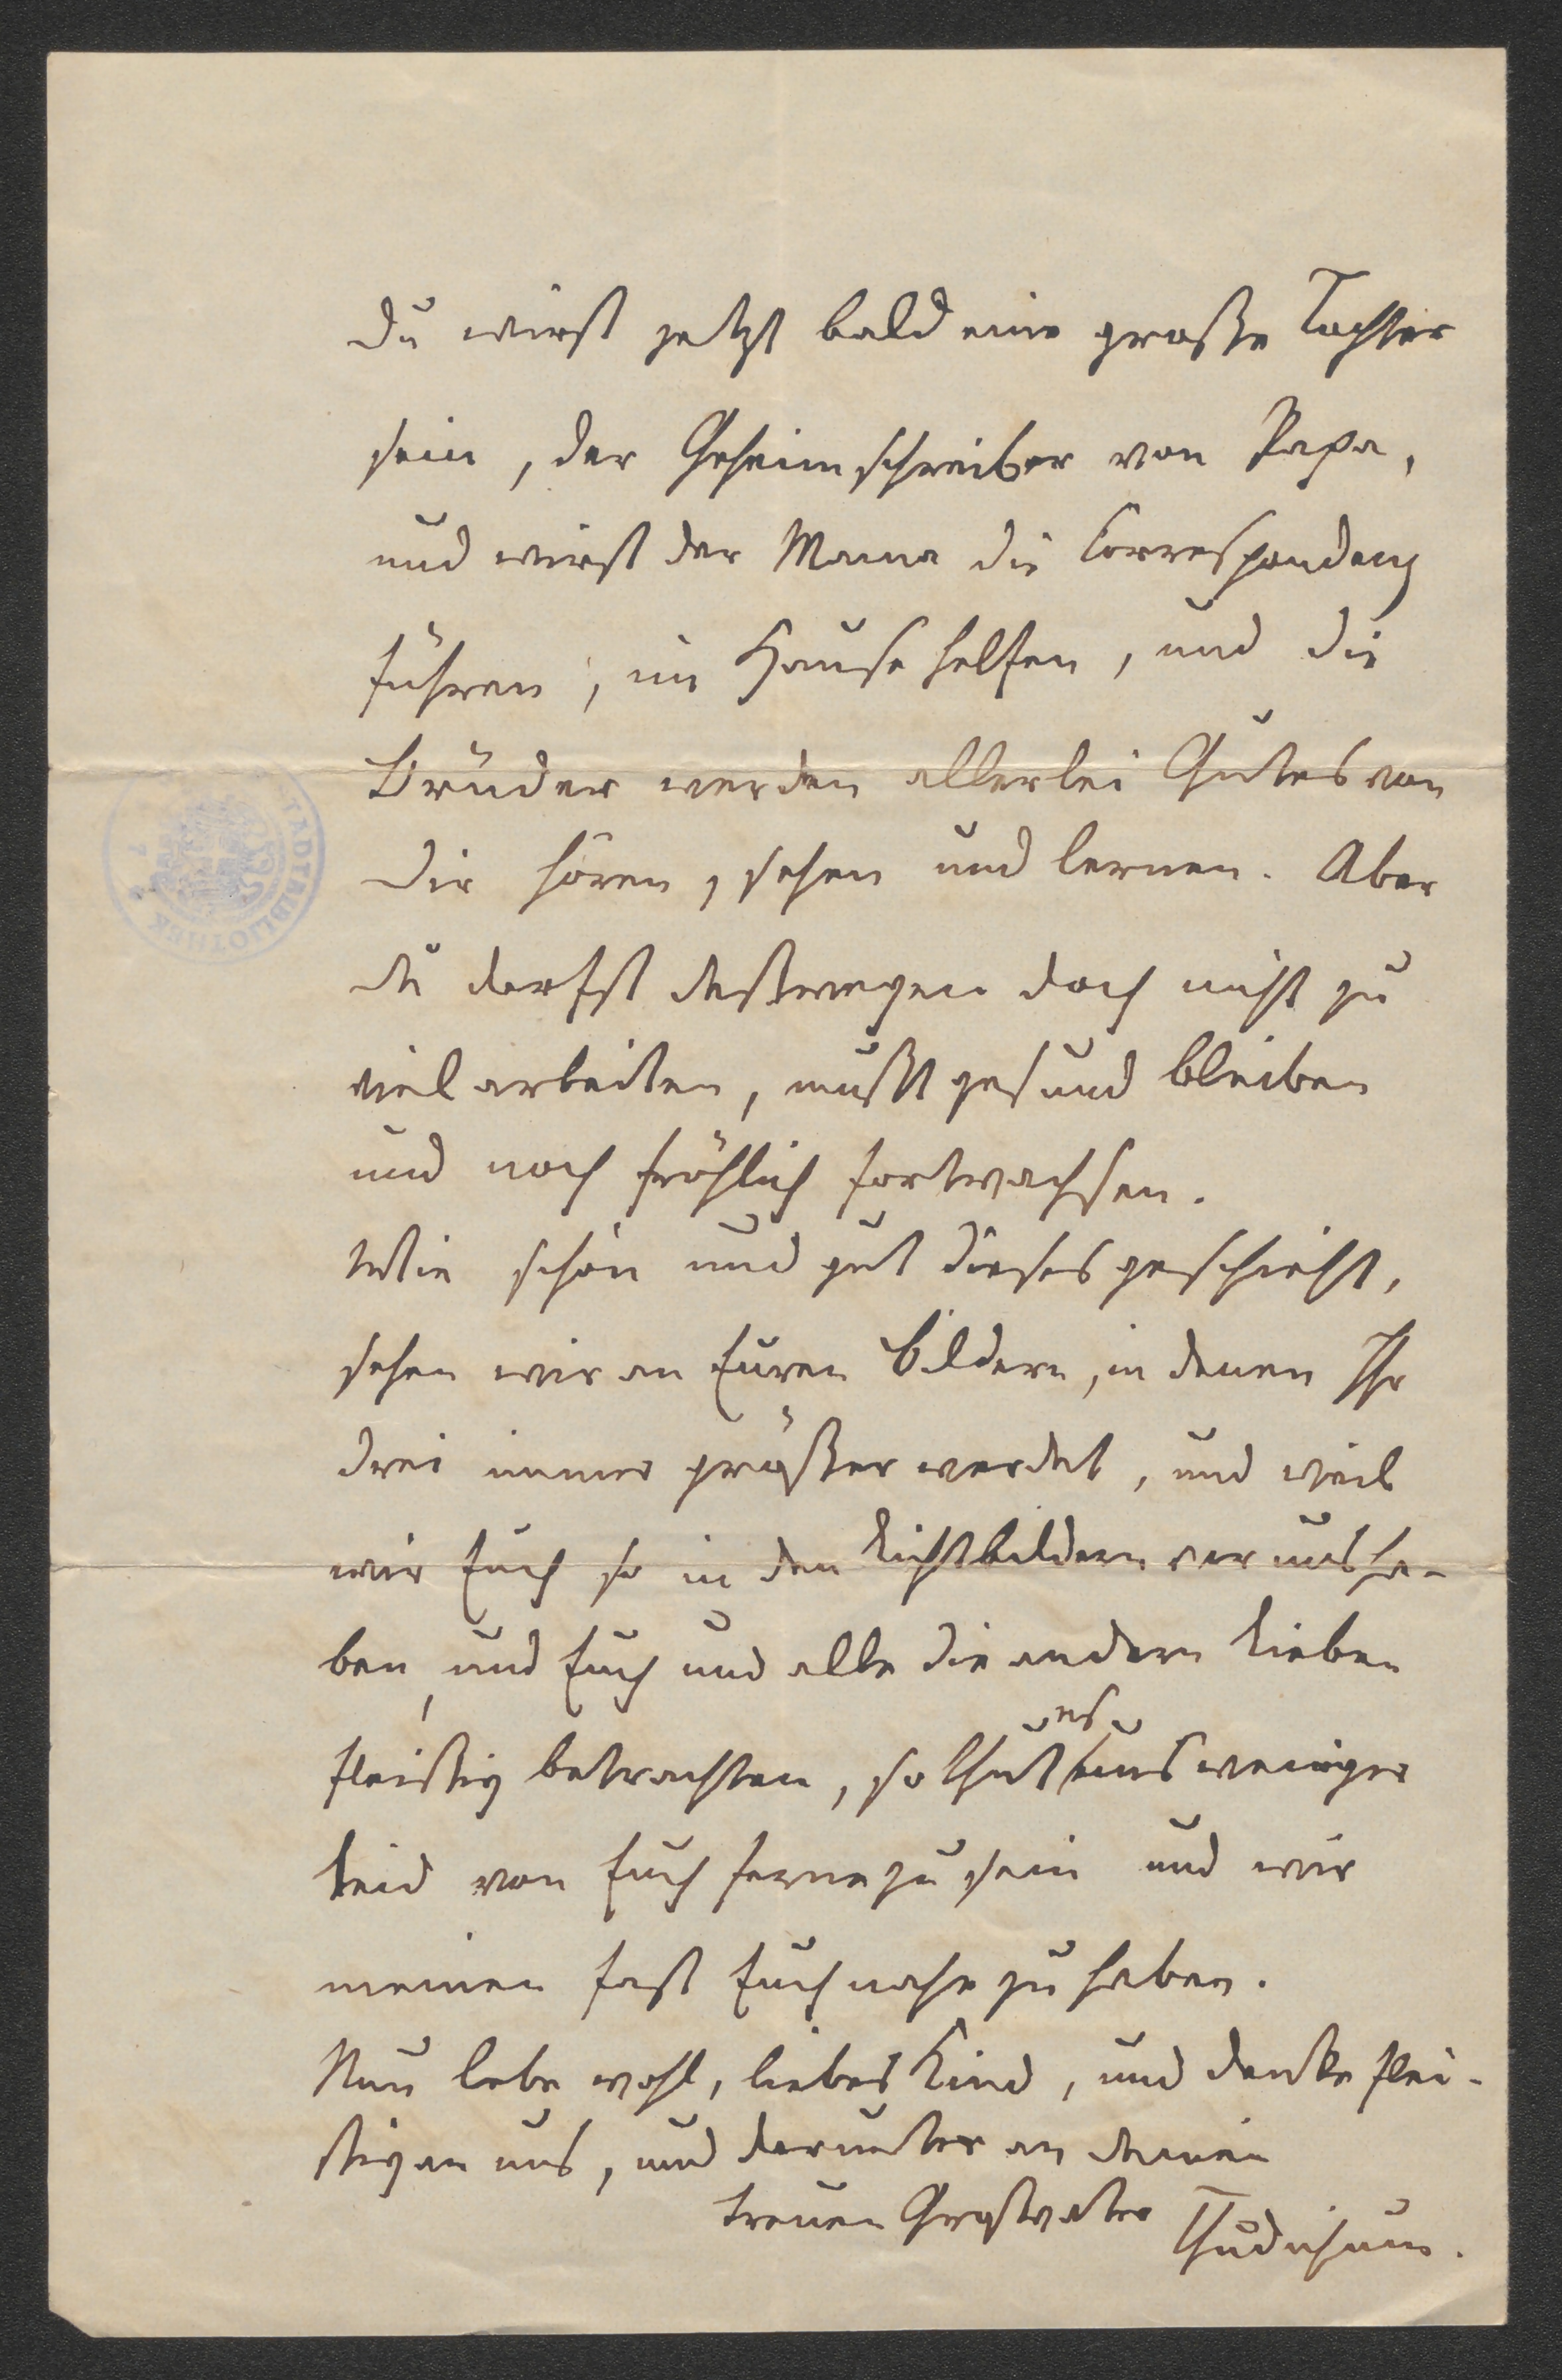 Du wirst jetzt bald eine große Tochter
sein, der Geheimschreiber von Papa,
und wirst der Mama die Correspondenz
führen, im Hause helfen, und die
Brüder werden allerlei Gutes von
Dir hören, sehen und lernen. Aber
du darfst deßwegen doch nicht zu
viel arbeiten, mußt gesund bleiben
und noch fröhlich fortwachsen.
Wie schön und gut dieses geschieht,
sehen wir an Euren Bildern, in denen Ihr
drei immer größer werdet, und weil
wir Euch so in den Lichtbildern vor uns ha-
ben, und Euch und alle die andern Lieben
fleißig betrachten, so thut es uns weniger
leid von Euch ferne zu sein und wir
meinen fast Euch nahe zu haben.
Nun lebe wohl, liebes Kind, und denke flei-
ßig an uns, und darunter an deinen
treuen Großvater Thudichum.
TADTBIBLIOTHEK